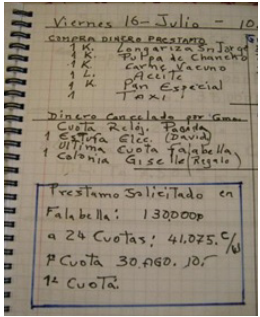 Viernes 16-Julio - 10
COMPRA DINERO PRESTAMO
1 K. Longariza Sn Jorge
1 K. Pulpa de Chancho
1 K. Carne Vacuno
1 L. Aceite
1 K Pan Especial
1 TAXI
Dinero Cancelado por
Cuota Reloj. Pagada
1 Estufa Elec. (David)
1 Ultima Cuota Falabella.
1 Colonia Giselle (Regalo)
Prestamo Solicitado en
Falabella: 130.000p
a 24 Cuotas: 41.075. c/u
P Cuota 30.AGO. 10.-
1ª Cuota.